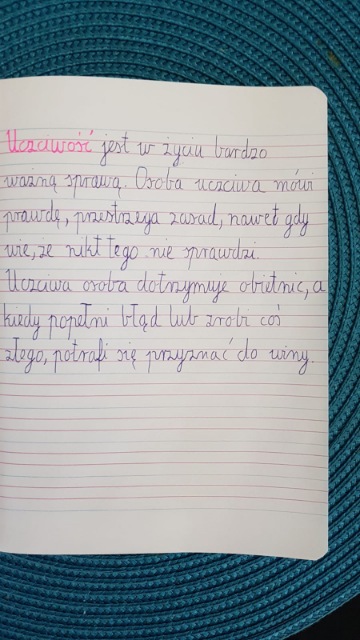 Uczciwość jest w życiu bardzo
ważną sprawą. Osoba uczciwa mówi
prawdę, przestrzega zasad, nawet gdy
wie, że nikt tego nie sprawdzi.
Uczciwa osoba dotrzymuje obietnic, a
kiedy popełni błąd lub zrobi coś
złego, potrafi się przyznać do winy.